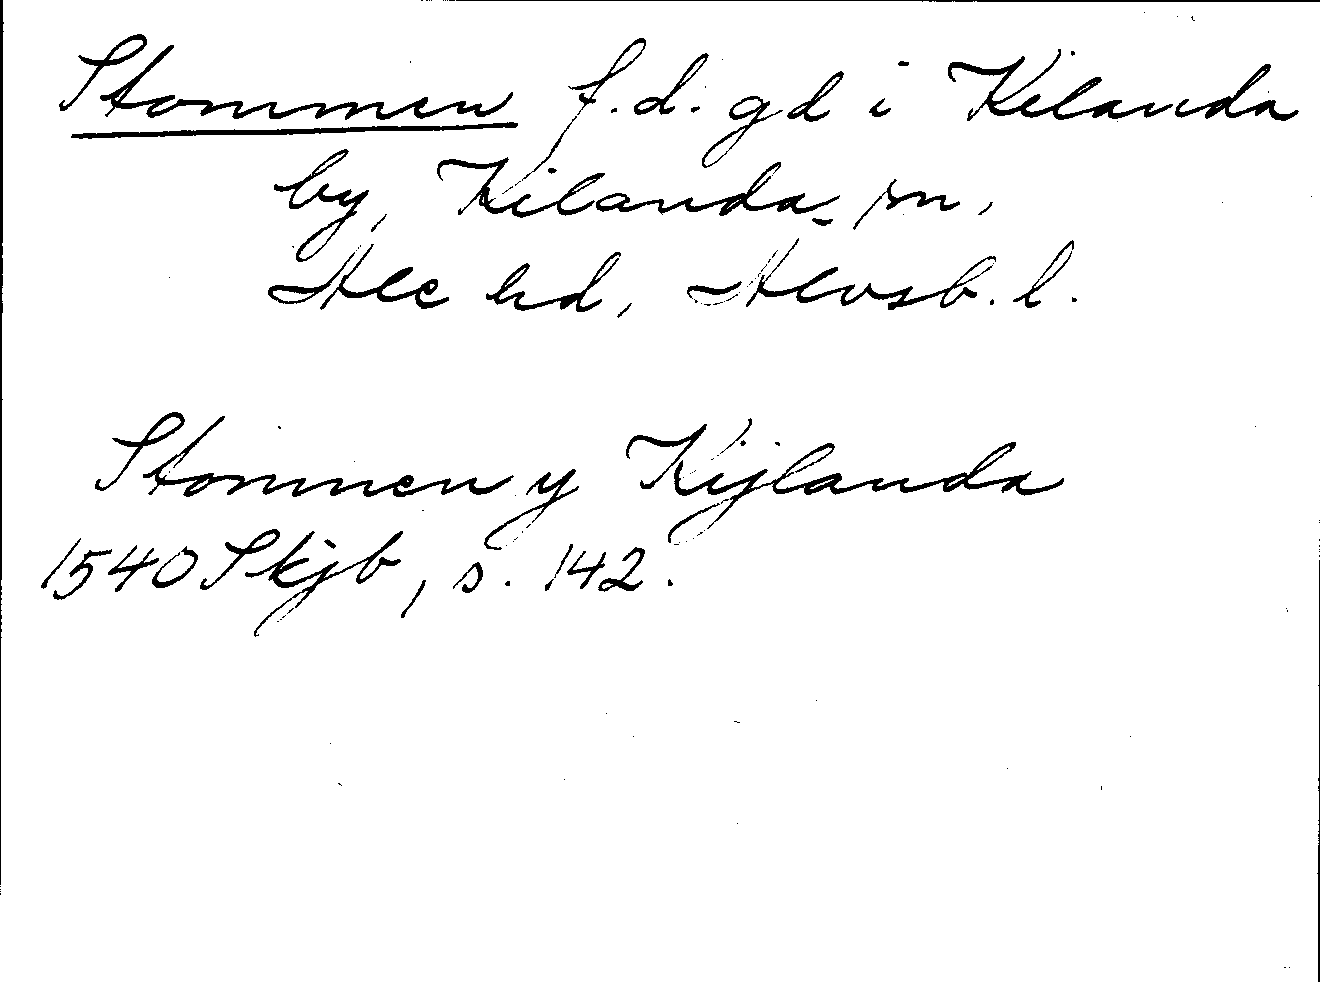 Stommen f.d. gd i Kilanda
by, Kilanda sn,
Ale hd, Älvsb. l.
Stommen y Kijlanda
1540 Skjb, s. 142.